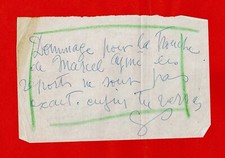 Dommage pour la Mouche
de Marcel Aymé les
reports ne sont pas
exact. enfin tu verras